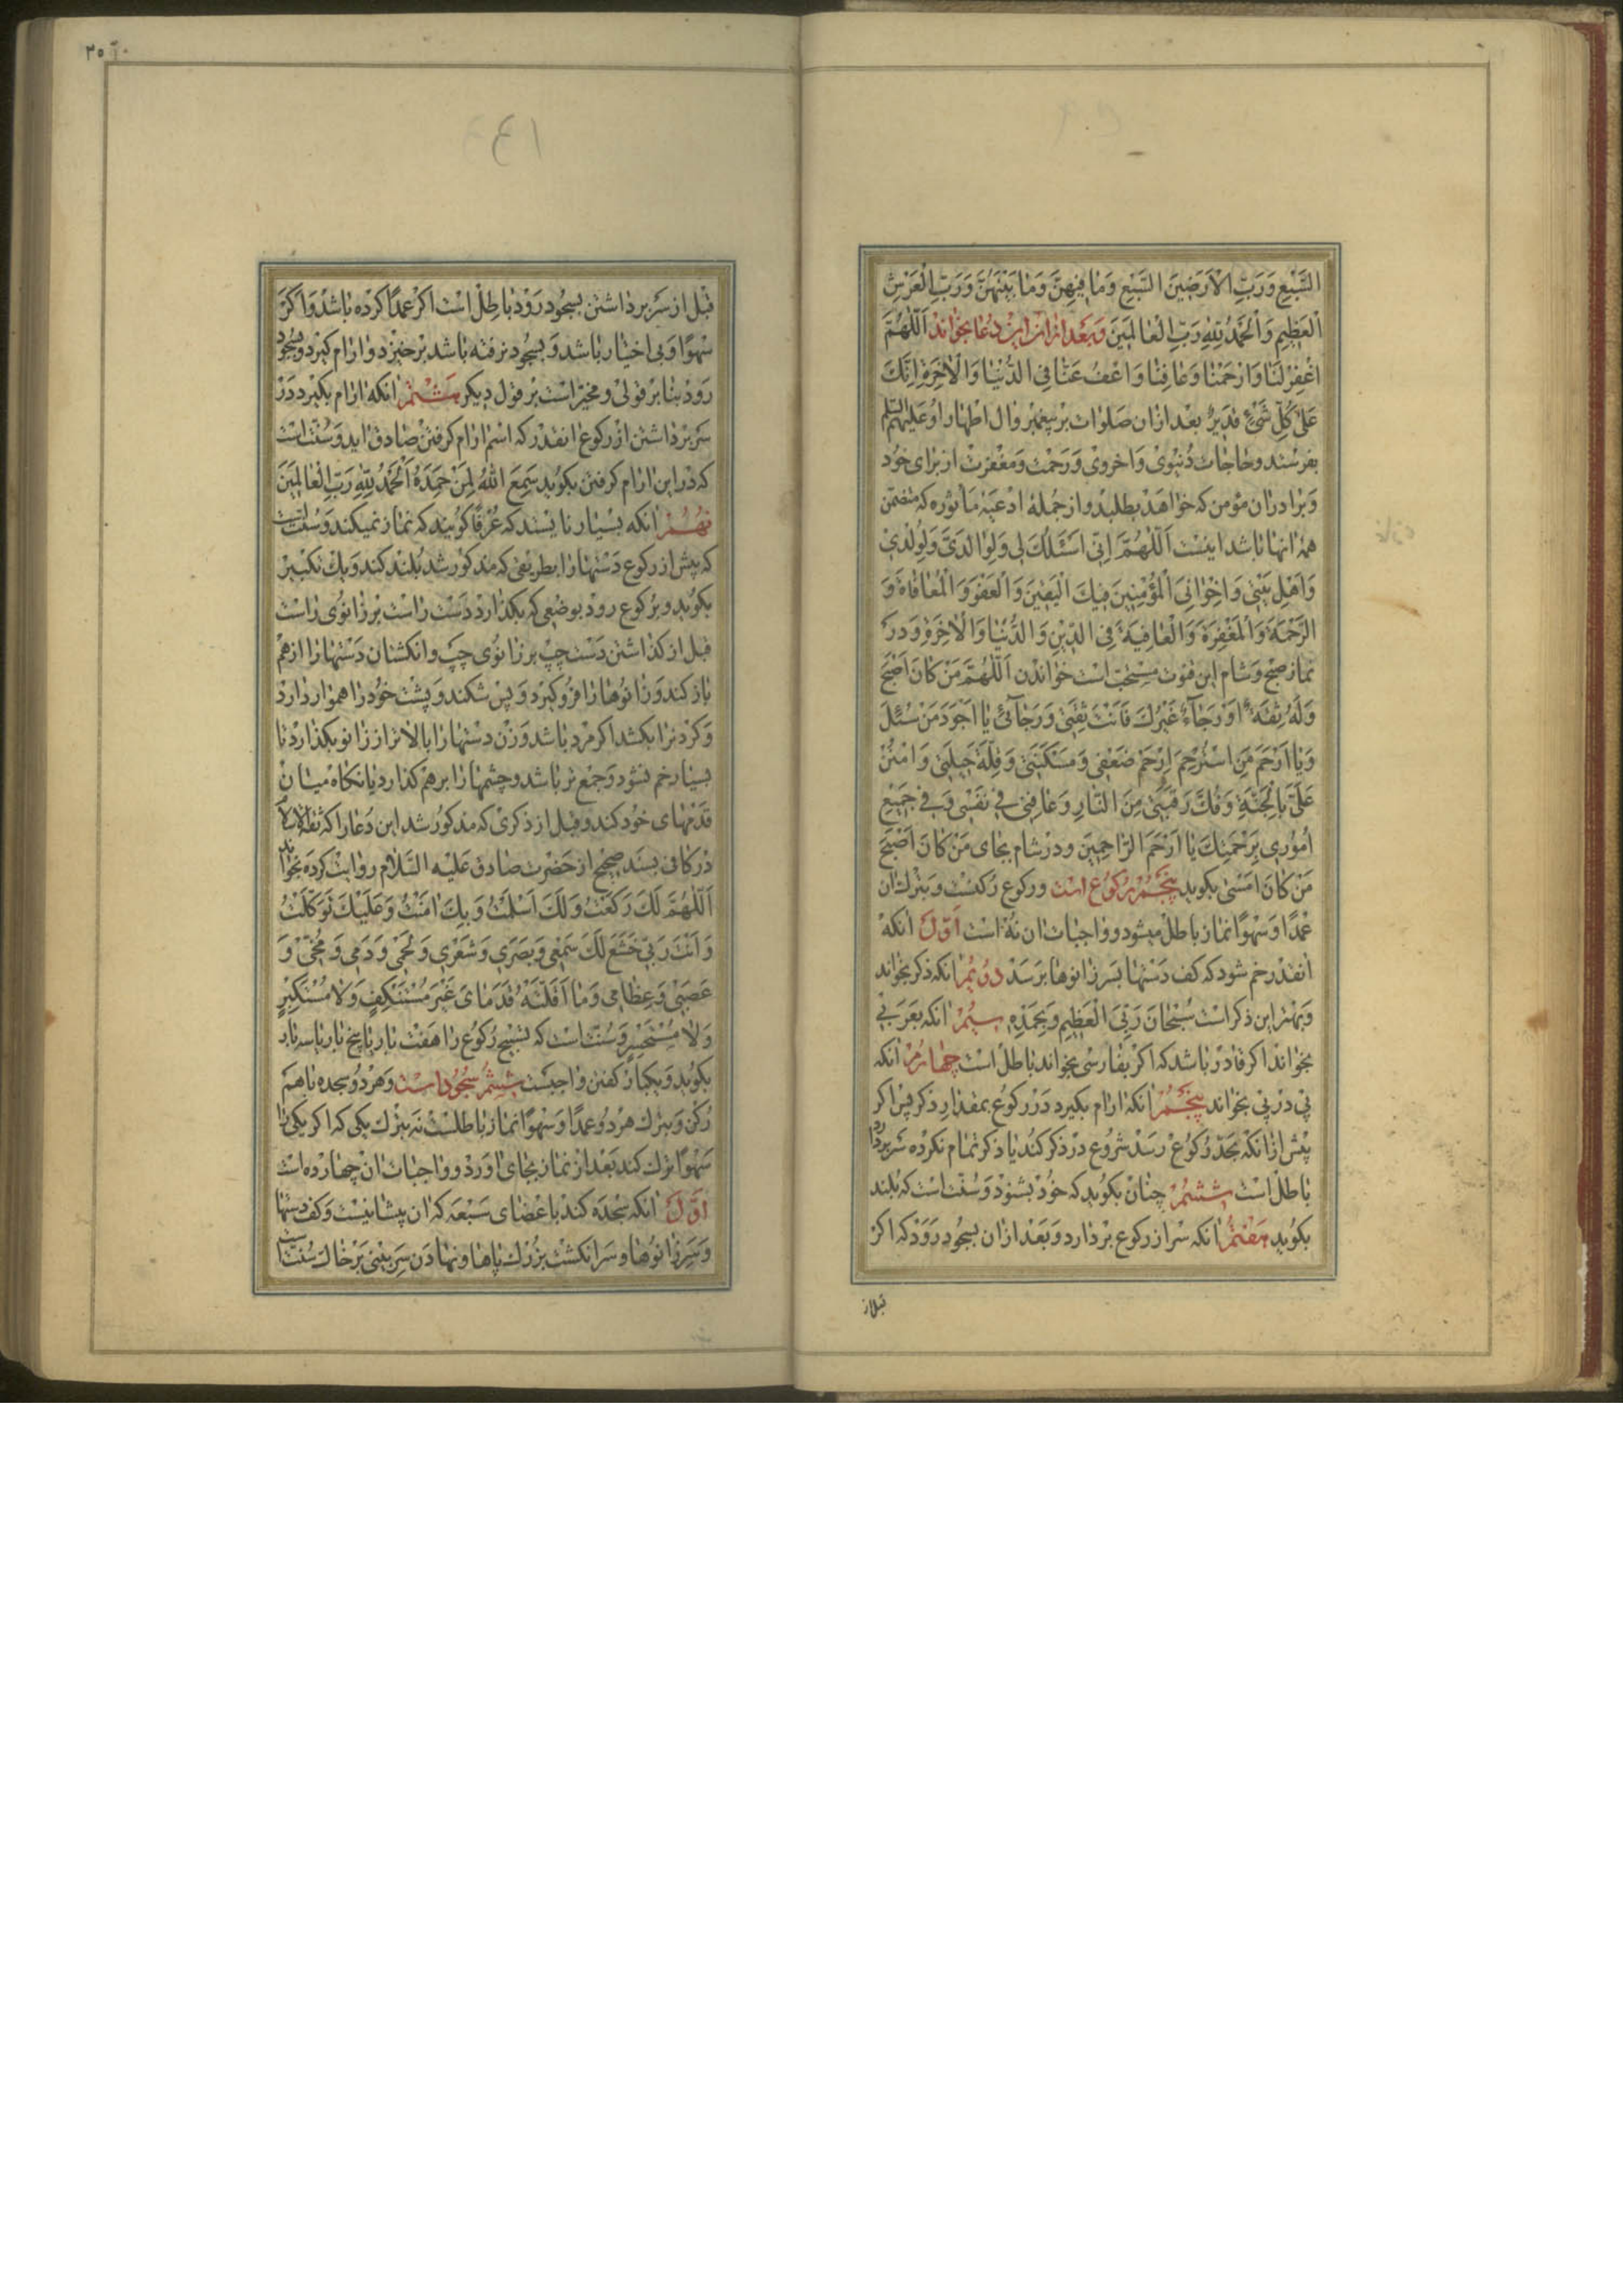 السَّبْعِ وَرَبِّ الْاَرَضِينَ السَّبْعِ وَمٰا فِيهِنَّ وَمٰا بَيْنَهُنَّ وَرَبِّ الْعَرْشِ
الْعَظِيمِ وَالْحَمْدُ لِلّٰهِ رَبِّ الْعٰالَمِينَ وبعد ازان اين دعا بخواند اَللّٰهُمَّ
اغْفِرْ لَنٰا وَارْحَمْنٰا وَعٰافِنٰا وَاعْفُ عَنّٰا فِي الدُّنْيٰا وَالْاٰخِرَةِ اِنَّكَ
عَلىٰ كُلِّ شَيْءٍ قَدِيرٌ بعد ازان صلوات بر پيغمبر وال اطهار او عليهم السلم
بفرستد وحاجات دنيوى واخروى ورحمت ومغفرت از براى خود
وبرادران مؤمن كه خواهد بطلبد واز جمله ادعيه مأثوره كه متضمن
همه انها باشد اينست اَللّٰهُمَّ اِنّي اَسْئَلُكَ لي وَلِوٰالِدَيَّ وَلِوُلْدِي
وَاَهْلِ بَيْتي وَاِخْوٰانِيَ الْمُؤْمِنِينَ فِيكَ الْيَقِينَ وَالْعَفْوَ وَالْمُعٰافٰاةَ وَ
الرَّحْمَةَ وَالْمَغْفِرَةَ وَالْعٰافِيَةَ فِي الدِّينِ وَالدُّنْيٰا وَالْاٰخِرَةِ ودر
نماز صبح وشام اين قنوت مستحب است خواندن اَللّٰهُمَّ مَنْ كٰانَ اَصْبَحَ
وَلَهُ ثِقَةٌ اَوْ رَجٰاءٌ غَيْرُكَ فَاَنْتَ ثِقَتي وَرَجٰائي يٰا اَجْوَدَ مَنْ سُئِلَ
وَيٰا اَرْحَمَ مَنِ اسْتُرْحِمَ اِرْحَمْ ضَعْفي وَمَسْكَنَتي وَقِلَّةَ حيلَتي وَامْنُنْ
عَلَيَّ بِالْجَنَّةِ وَفُكَّ رَقَبَتي مِنَ النّٰارِ وَعٰافِني في نَفْسي وَفي جَميعِ
اُمُوري بِرَحْمَتِكَ يٰا اَرْحَمَ الرّٰاحِمينَ ودر شام بجاى مَنْ كٰانَ اَصْبَحَ
مَنْ كٰانَ اَمْسىٰ بكويد پنجم ركوع است وركوع ركنست وبترك ان
عمدا وسهوا نماز باطل ميشود وواجبات ان نه است اول انكه
انقدر خم شود كه كف دستها بسر زانوها برسد دويم انكه ذكر بخواند
وبهتر اين ذكر است سُبْحٰانَ رَبِّيَ الْعَظيمِ وَبِحَمْدِهِ سيم انكه بعربى
بخواند اكر قادر باشد كه اكر بفارسى بخواند باطل است چهارم انكه
پى در پى بخواند پنجم انكه ارام بكيرد در ركوع بمقدار ذكر پس اكر
پيش ازانكه بحد ركوع رسد شروع در ذكر كند يا ذكر تمام نكرده سر بردارد
باطل است ششم چنان بكويد كه خود بشنود وسنت است كه بلند
بكويد هفتم انكه سر از ركوع بردارد وبعد ازان بسجود رود كه اكر
قبل از
٣٥
قبل از سر برداشتن بسجود رود باطل است اكر عمدا كرده باشد واكر
سهوا وبى اختيار باشد وبسجود نرفته باشد برخيزد وارام كيرد وبسجود
رود بنا بر قولى ومخير است بر قول ديكر هشتم انكه ارام بكيرد در
سر برداشتن از ركوع انقدر كه اسم ارام كرفتن صادق ايد وسنت است
كه در اين ارام كرفتن بكويد سَمِعَ اللّٰهُ لِمَنْ حَمِدَهُ اَلْحَمْدُ لِلّٰهِ رَبِّ الْعٰالَمينَ
نهم انكه بسيار نايستد كه عرفا كويند كه نماز نميكند وسنت است
كه پيش از ركوع دستها را بطريقى كه مذكور شد بلند كند ويك تكبير
بكويد وبركوع رود بوضعى كه بكذارد دست راست بر زانوى راست
قبل از كذاشتن دست چپ بر زانوى چپ وانكشتان دستها را از هم
باز كند وزانوها را فرو كيرد وپس شكند وپشت خود را هموار دارد
وكردن را بكشد اكر مرد باشد وزن دستها را بالاتر از زانو بكذارد تا
بسيار خم نشود وجمع تر باشد وچشمها را برهم كذارد يا نكاه ميان
قدمهاى خود كند وقبل از ذكرى كه مذكور شد اين دعا را كه ثقة الاسلام
در كافى بسند صحيح از حضرت صادق عليه السلام روايت كرده بخواند
اَللّٰهُمَّ لَكَ رَكَعْتُ وَلَكَ اَسْلَمْتُ وَبِكَ اٰمَنْتُ وَعَلَيْكَ تَوَكَّلْتُ
وَاَنْتَ رَبّي خَشَعَ لَكَ سَمْعي وَبَصَري وَشَعْري وَلَحْمي وَدَمي وَمُخّي وَ
عَصَبي وَعِظٰامي وَمٰا اَقَلَّتْهُ قَدَمٰايَ غَيْرَ مُسْتَنْكِفٍ وَلٰا مُسْتَكْبِرٍ
وَلٰا مُسْتَحْسِرٍ وسنت است كه تسبيح ركوع را هفت بار يا پنج بار يا سه بار
بكويد ويكبار كفتن واجبست ششم سجود است وهر دو سجده باهم
ركن وبترك هر دو عمدا وسهوا نماز باطلست نه بترك يكى كه اكر يكى را
سهوا ترك كند بعد از نماز بجاى اورد وواجبات ان چهارده است
اول انكه سجده كند باعضاى سبعه كه ان پيشانيست وكف دستها
وسر زانوها وسر انكشت بزرك پاها ونهادن سر بينى بر خاك سنت است